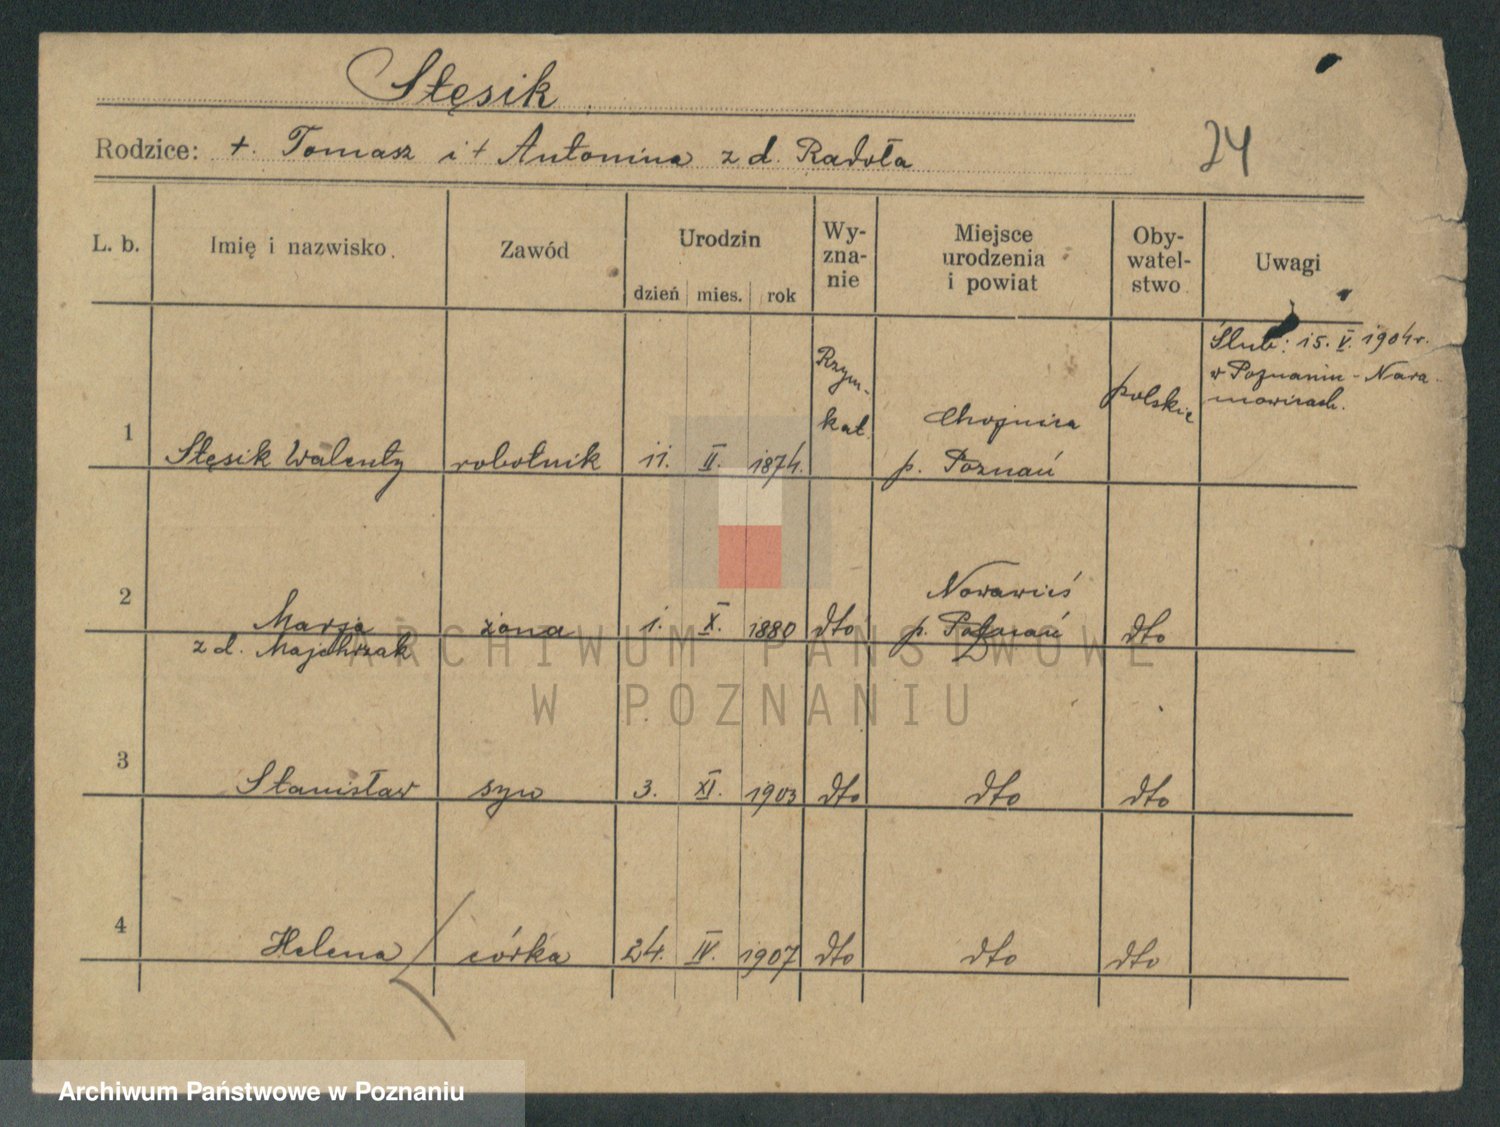 Stęsik
24
Rodzice: +. Tomasz i + Antonina z d. Radoła
L. b. Imię i nazwisko Zawód Urodzin dzień mies. rok Wy-zna-nie Miejsce urodzenia i powiat Oby-watel-stwo Uwagi
Ślub: 15. V. 1904 r.
w Poznaniu - Nara
mowicach.
Rzym.-
kat.
polskie
Chojnica
1 Stęsik Walenty robotnik 11. II. 1874. p. Poznań
Nowawieś
2 Marja żona 1. X. 1880 dto p. Poznań dto
z d. Majchrzak
3 Stanisław syn 3. XI. 1903 dto dto dto
4 Helena córka 24. IV. 1907 dto dto dto
ARCHIWUM PAŃSTWOWE
W POZNANIU
Archiwum Państwowe w Poznaniu